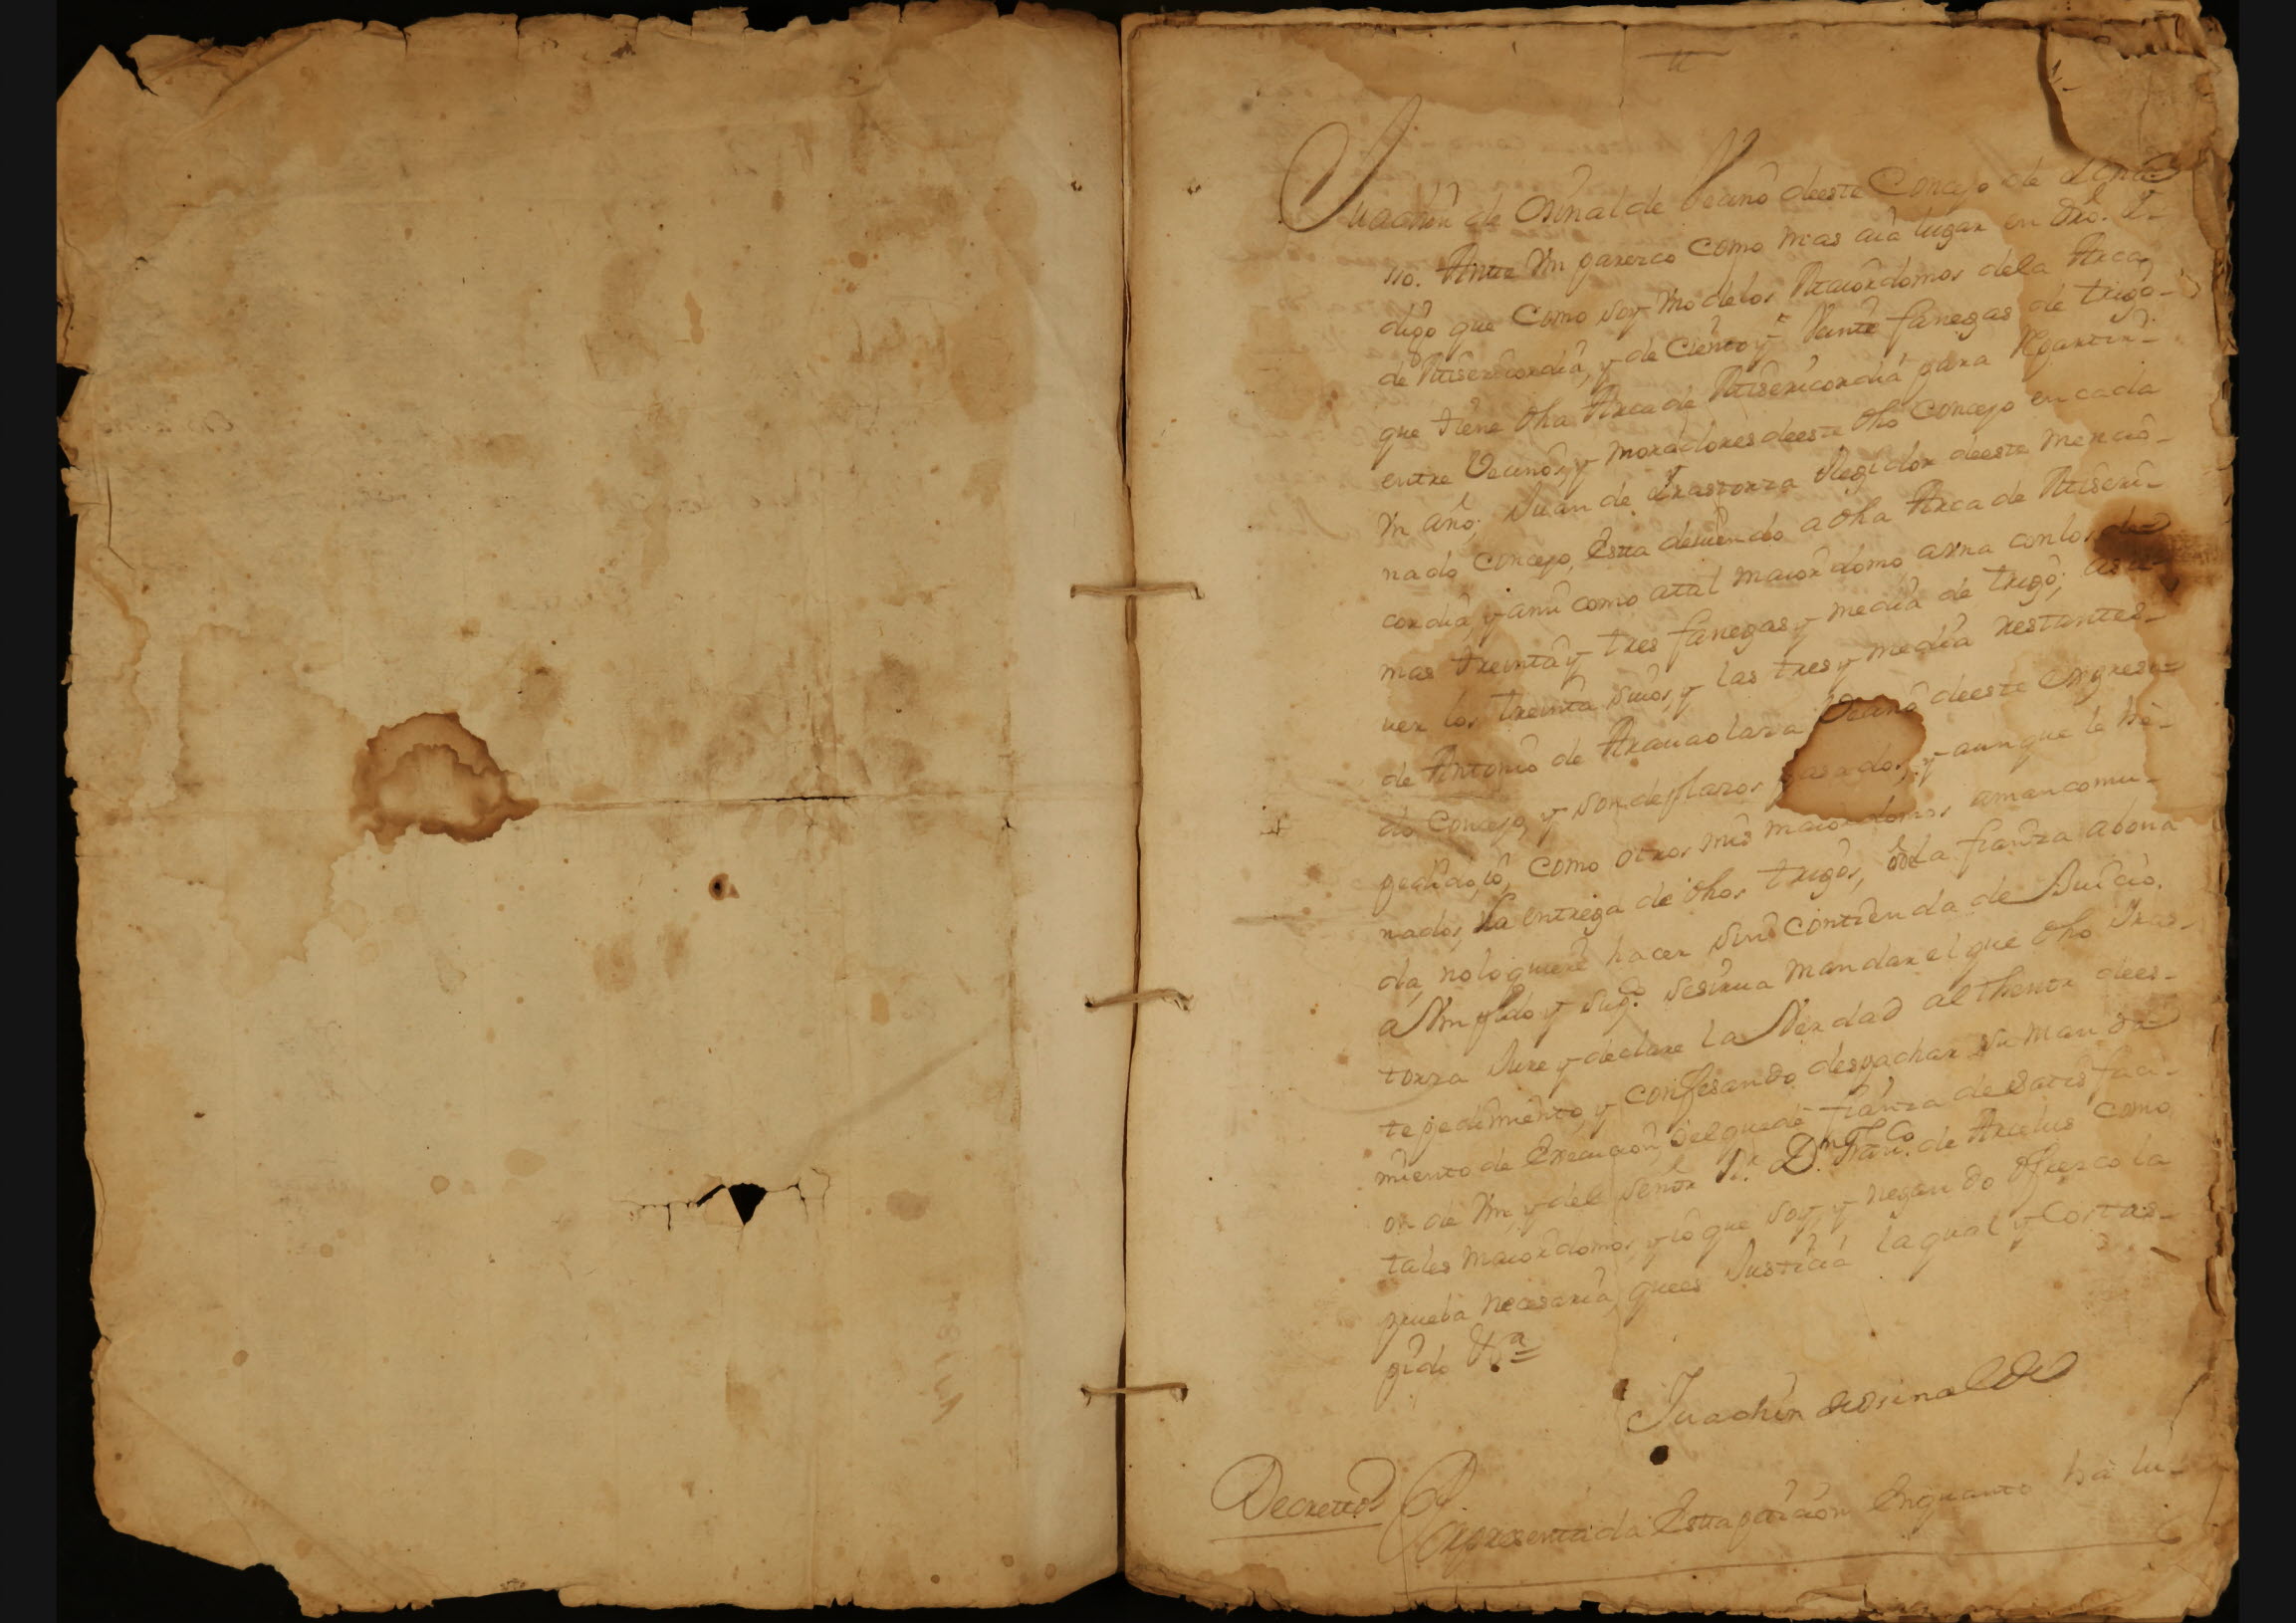 Juachin de Osinalde Vecino deeste Concejo de
sso. Ante Vm parezco como mas aia lugar en dro. Y
digo que como soy Vno delos Maiordomos dela Arca
de Misericordia, y de Ciento y Veinte fanegas de trigo
que tiene dha Arca de Misericordia para Repartir
entre Vecinos, y moradores deeste dho Concejo en cada
Vn año; Juan de Yrastorza Regidor deeste mencio-
nado concejo, Esta deuiendo a dha Arca de Miseri-
cordia, y ami como atal maiordomo, con los de
mas treinta y tres fanegas y media de trigo;
uer los treinta suios, y las tres y media restantes
de Antonio de Arauaolaza Vecino deeste expresa-
do Concejo, y son de plazos pasados, y aunque le he
pedido, io, como otros mis maiordomos amancomu-
nados, la entrega de dhos trigos, o la fianza abona
da, nolo quiere hacer sin contienda de Juicio.
a Vm pido y supco. sesirua mandar el que dho Yras-
torza Jure y declare la Verdad al thenor dees-
te pedimiento, y confesando despachar su manda-
miento de Execucion, o el que de fianza de satisfaci-
on de Vm, y del Señor Rr. Dn. Franco. de Arcelus como
tales maiordomos, y io que soy, y negando Ofrezco la
prueba necesaria, que es Justicia la qual y Costas
pido &ra
Juachin de Osinalde
Decretto
Por presenttada Estta peticion Enquanto ha lu-